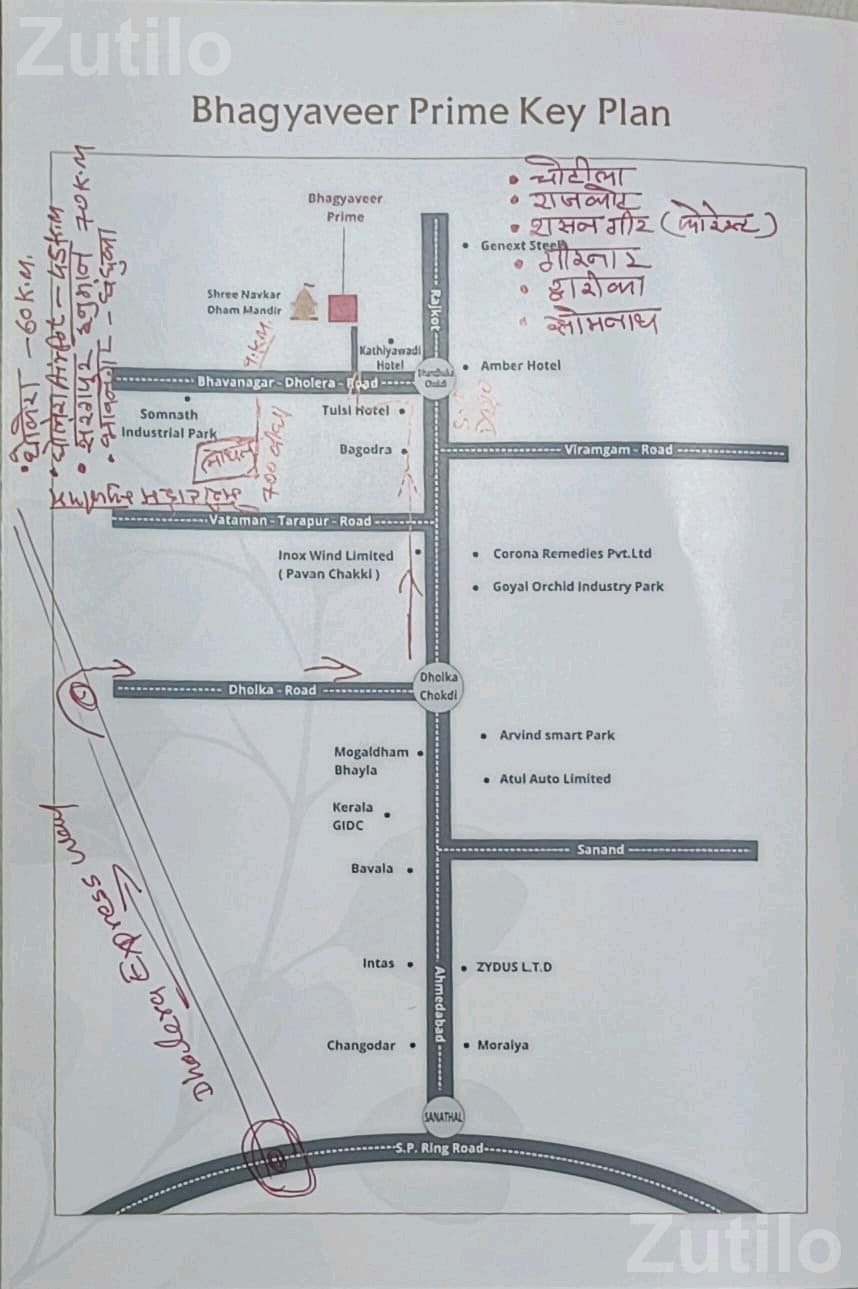 Zutilo
Bhagyaveer Prime Key Plan
• चोटीला
• राजकोट
• शासन गीर (फोरेस्ट)
• गीरनार
• द्वारीका
• सोमनाथ
Bhagyaveer
Prime
Shree Navkar
Dham Mandir
Genext Steel
Rajkot
Kathiyawadi
Hotel
Amber Hotel
Bhavanagar - Dholera - Road
Dhandhuka
Chokdi
Somnath
Industrial Park
Tulsi Hotel
Bagodra
Viramgam - Road
Vataman - Tarapur - Road
Inox Wind Limited
( Pavan Chakki )
Corona Remedies Pvt.Ltd
Goyal Orchid Industry Park
Dholka
Chokdi
Dholka - Road
Arvind smart Park
Mogaldham
Bhayla
Atul Auto Limited
Kerala
GIDC
Sanand
Bavala
Intas
ZYDUS L.T.D
Ahmedabad
Changodar
Moraiya
SANATHAL
S.P. Ring Road
• धोलेरा - 60 K.M.
• धोलेरा Airport - 45 K.M
• हनुमान 70 K.M
• भावनगर -
9. K.M.
700
Dholera Express way
Zutilo